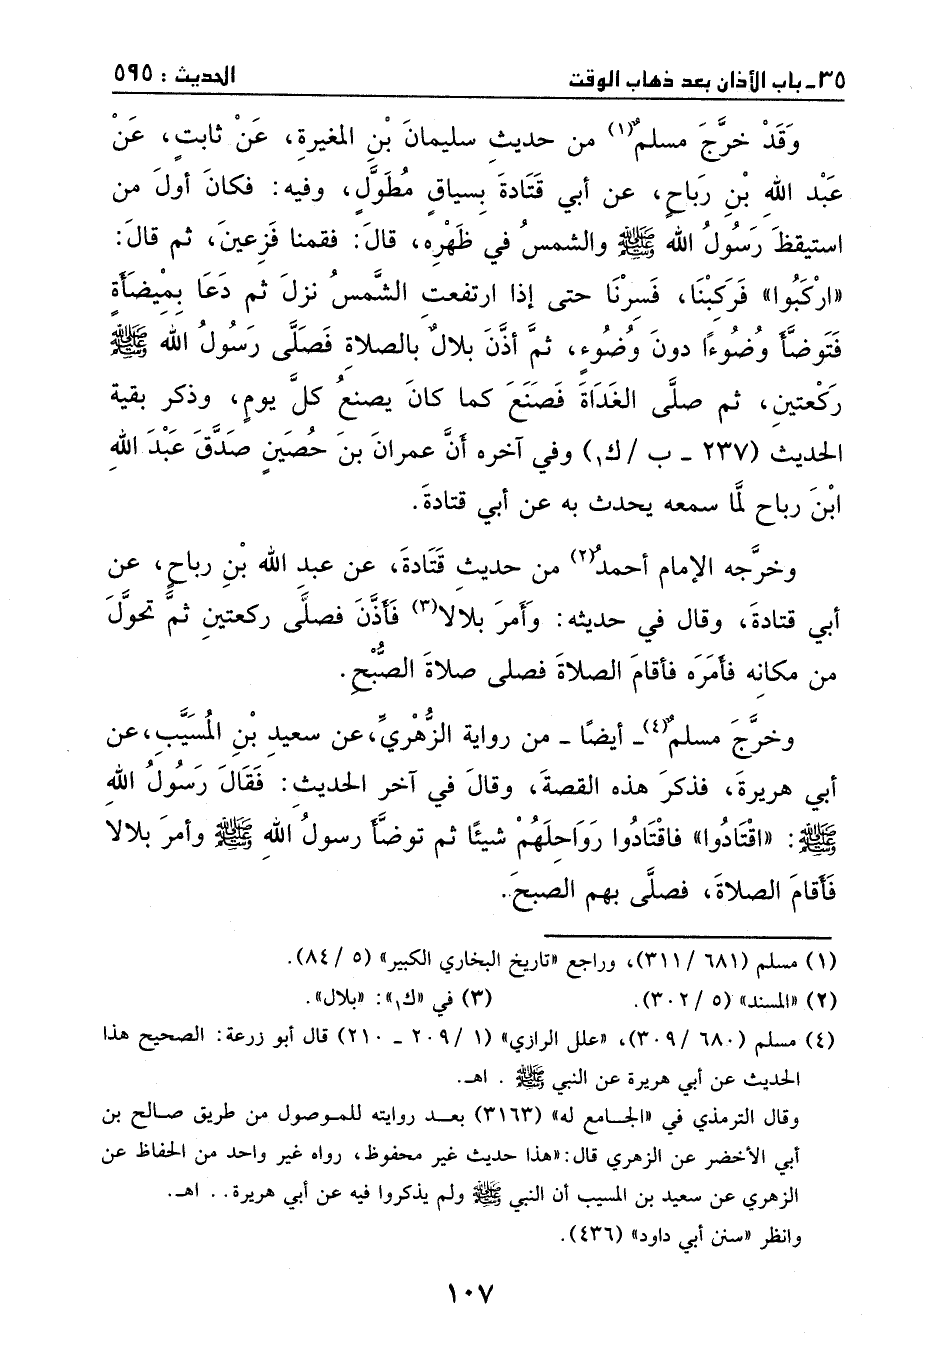 ٣٥ـ باب الأذان بعد ذهاب الوقت الحديث : ٥٩٥
وَقَدْ خرَّجَ مسلمٌ(١) من حديثِ سليمانَ بْنِ المغيرةِ، عَنْ ثابتٍ، عَنْ
عَبْد اللهِ بْنِ رَباحٍ، عن أبي قَتَادةَ بِسياقٍ مُطَوَّلٍ، وفيه: فكانَ أولَ من
استيقظَ رَسُولُ الله ﷺ والشمسُ في ظَهْرِه، قالَ: فقمنا فَزِعينَ، ثم قالَ:
«ارْكَبُوا» فَرَكِبْنَا، فَسِرْنَا حتى إذا ارتفعتِ الشَّمسُ نزلَ ثم دَعَا بِمِيْضَأَةٍ
فَتَوضَّأَ وضُوءًا دونَ وضُوءٍ، ثمَّ أذَّنَ بلالٌ بالصلاةِ فَصلَّى رَسُولُ الله ﷺ
ركْعتينِ، ثم صلَّى الغَدَاةَ فَصَنَعَ كما كانَ يصنعُ كلَّ يومٍ، وذكر بقيةَ
الحديثِ (٢٣٧ ـ ب / ك١) وفي آخره أنَّ عمرانَ بنَ حُصَينٍ صَدَّقَ عَبْدَ اللهِ
ابْنَ رباح لمَّا سمعه يحدث به عن أبي قتادةَ.
وخرَّجه الإمام أحمدُ(٢) من حديثِ قَتَادَةَ، عن عبدِ الله بْنِ رباحٍ، عن
أبي قتادةَ، وقال في حديثه: وأَمرَ بلالا(٣) فَأَذَّنَ فصلَّى ركعتينِ ثمَّ تحولَّ
من مكانِه فأمَرَه فأقامَ الصلاةَ فصلى صلاةَ الصُّبْحِ.
وخرَّجَ مسلمٌ(٤)ـ أيضًا ـ من رواية الزُّهْريِّ، عن سعيدِ بْنِ المُسَيَّبِ، عن
أبي هريرةَ، فذكرَ هذه القصةَ، وقالَ في آخر الحديثِ: فَقَالَ رَسُولُ اللهِ
ﷺ: «اقْتَادُوا» فاقْتَادُوا رَوَاحِلَهُمْ شيئًا ثم توضَّأَ رسولُ اللهِ ﷺ وأمرَ بلالا
فَأَقامَ الصلاةَ، فصلَّى بهم الصبحَ.
(١) مسلم (٦٨١ /٣١١)، وراجع «تاريخ البخاري الكبير» (٥ /٨٤).
(٢) «المسند» (٥ /٣٠٢). (٣) في «ك١»: «بلال».
(٤) مسلم (٦٨٠ /٣٠٩)، «علل الرازي» (١ /٢٠٩ ـ ٢١٠) قال أبو زرعة: الصحيح هذا
الحديث عن أبي هريرة عن النبي ﷺ . اهـ.
وقال الترمذي في «الجامع له» (٣١٦٣) بعد روايته للموصول من طريق صالح بن
أبي الأخضر عن الزهري قال: «هذا حديث غير محفوظ، رواه غير واحد من الحفاظ عن
الزهري عن سعيد بن المسيب أن النبي ﷺ ولم يذكروا فيه عن أبي هريرة.. اهـ.
وانظر «سنن أبي داود» (٤٣٦).
١٠٧